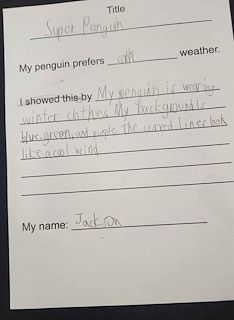 Title
Super Penguin
My penguin prefers cold weather.
I showed this by My penguin is wearing
winter clthes. My background is
blue, green, and purple. The curved lines look
like a cool wind.
My name: Jackson